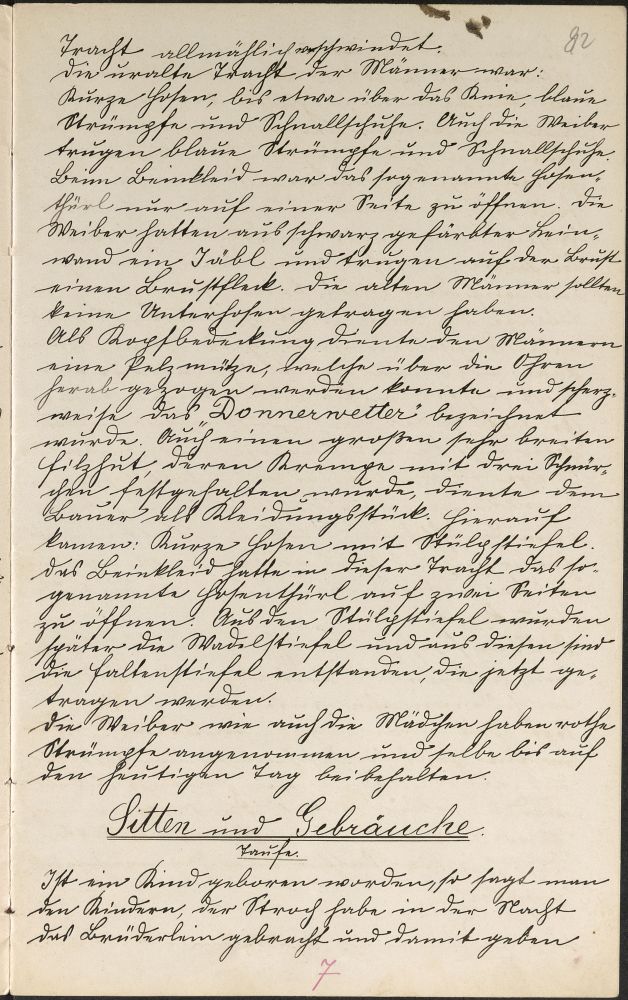 82
Tracht allmählich verschwindet.
Die uralte Tracht der Männer war:
Kurze Hosen, bis etwa über das Knie, blaue
Strümpfe und Schnallschuhe. Auch die Weiber
trugen blaue Strümpfe und Schnallschuhe.
Beim Beinkleid war das sogenannte Hosen-
thürl nur auf einer Seite zu öffnen. Die
Weiber hatten aus schwarz gefärbter Lein-
wand ein Jäbl und trugen auf der Brust
einen Brustfleck. Die alten Männer sollten
keine Unterhosen getragen haben.
Als Kopfbedeckung diente den Männern
eine Pelzmütze, welche über die Ohren
herab gezogen werden konnte und scherz-
weise das "Donnerwetter" bezeichnet
wurde. Auch einen großen sehr breiten
Filzhut, deren Krempe mit drei Schnür-
chen festgehalten wurde, diente dem
Bauer als Kleidungsstück. Hierauf
kamen: Kurze Hosen mit Stülpstiefel.
Das Beinkleid hatte in dieser Tracht das so-
genannte Hosenthürl auf zwei Seiten
zu öffnen. Aus den Stülpstiefel wurden
später die Wadelstiefel und aus diesen sind
die Faltenstiefel entstanden, die jetzt ge-
tragen werden.
Die Weiber wie auch die Mädchen haben rothe
Strümpfe angenommen und selbe bis auf
den heutigen Tag beibehalten.
Sitten und Gebräuche.
Taufe.
Ist ein Kind geboren worden, so sagt man
den Kindern, der Stroch habe in der Nacht
das Brüderlein gebracht und damit geben
7